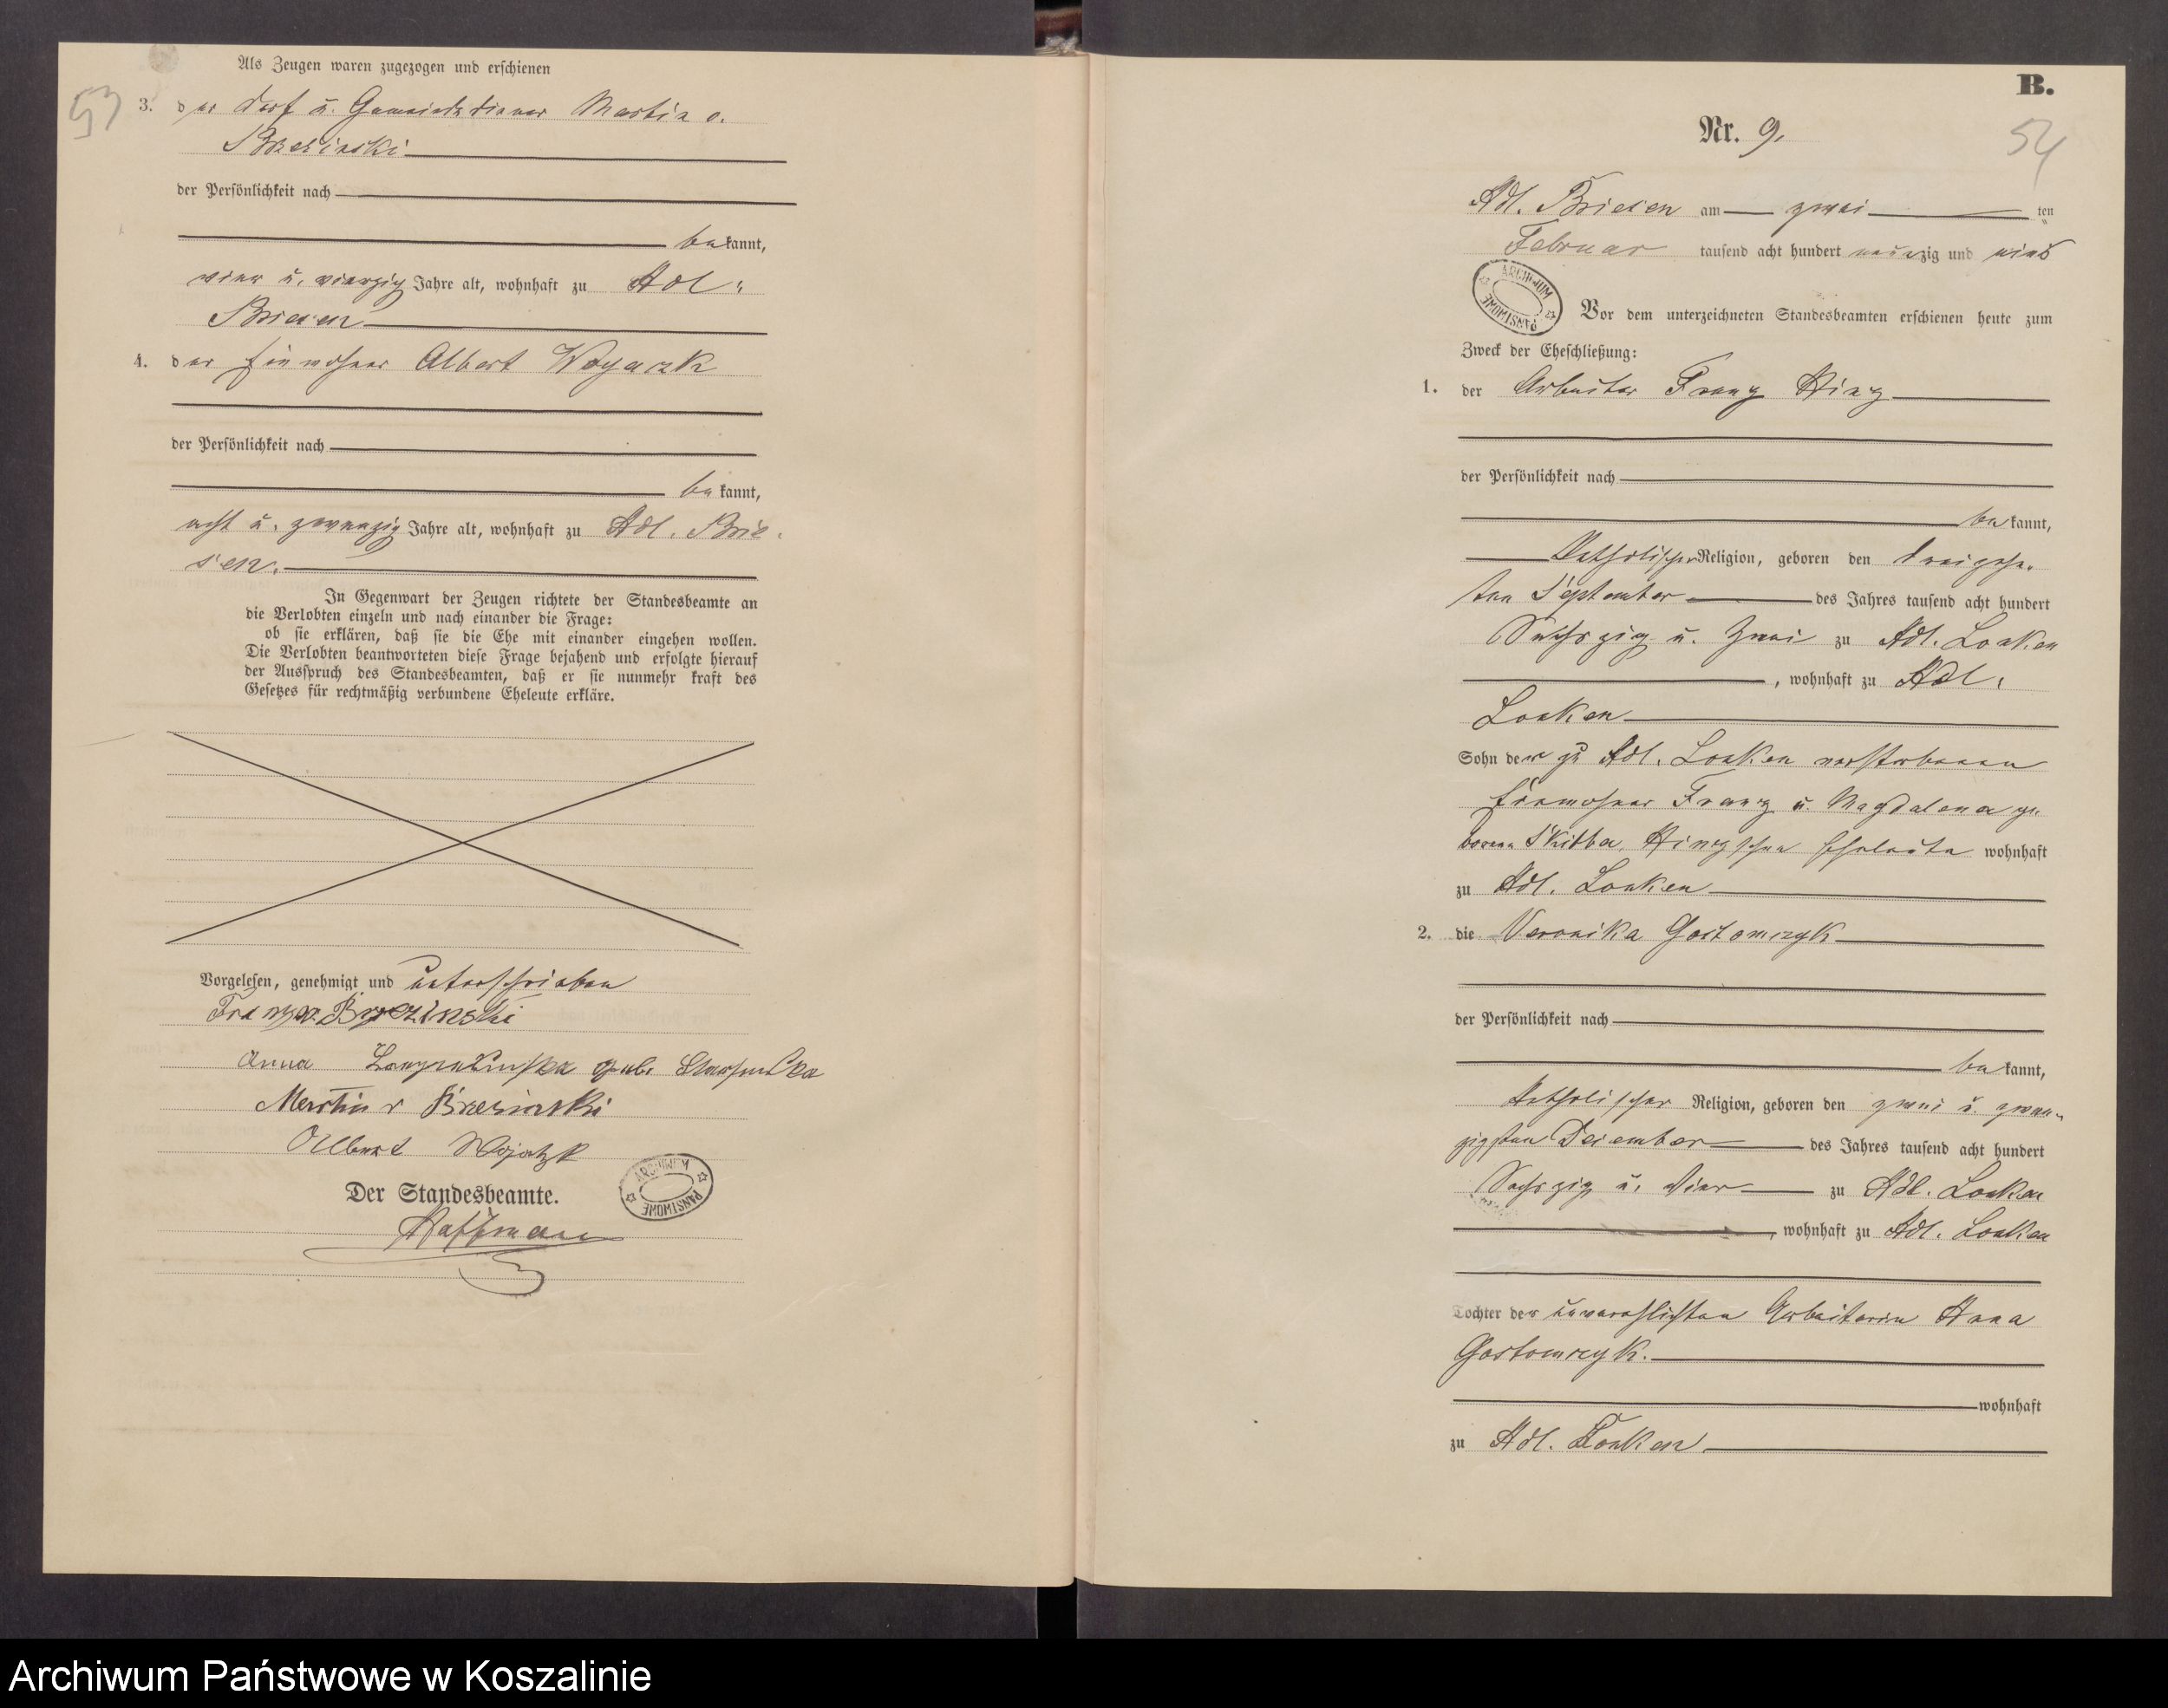 Als Zeugen waren zugezogen und erschienen
53
3. der Dorf u. Gemeindediener Martin v.
Brzezinski
der Persönlichkeit nach
bekannt,
vier u. vierzig Jahre alt, wohnhaft zu Adl.
Briesen
4. der Einwohner Albert Woyaczk
der Persönlichkeit nach
bekannt,
acht u. zwanzig Jahre alt, wohnhaft zu Adl. Brie-
sen.
In Gegenwart der Zeugen richtete der Standesbeamte an
die Verlobten einzeln und nach einander die Frage:
ob sie erklären, daß sie die Ehe mit einander eingehen wollen.
Die Verlobten beantworteten diese Frage bejahend und erfolgte hierauf
der Ausspruch des Standesbeamten, daß er sie nunmehr kraft des
Gesetzes für rechtmäßig verbundene Eheleute erkläre.
Vorgelesen, genehmigt und unterschrieben
Franz v. Brzezinski
Anna geb.
Martin v Brzezinski
Albert Wojatzk
Der Standesbeamte.
ARCHIWUM PAŃSTWOWE
Hoffmann
B.
Nr. 9.
54
Adl. Briesen am zwei ten
Februar tausend acht hundert neunzig und eins
ARCHIWUM PAŃSTWOWE
Vor dem unterzeichneten Standesbeamten erschienen heute zum
Zweck der Eheschließung:
1. der Arbeiter Franz Hinz
der Persönlichkeit nach
bekannt,
katholischer Religion, geboren den dreizehn-
ten September des Jahres tausend acht hundert
Sechszig u. Zwei zu Adl. Lonken
, wohnhaft zu Adl.
Lonken
Sohn der zu Adl. Lonken verstorbenen
Einwohner Franz u. Magdalena ge-
borene Skiba, Hinzschen Eheleute wohnhaft
zu Adl. Lonken
2. die Veronika Gostomczyk
der Persönlichkeit nach
bekannt,
katholischer Religion, geboren den zwei u. zwan-
zigsten Dezember des Jahres tausend acht hundert
Sechszig u. Vier zu Adl. Lonken
, wohnhaft zu Adl. Lonken
Tochter der unverehelichten Arbeiterin Anna
Gostomczyk.
wohnhaft
zu Adl. Lonken
Archiwum Państwowe w Koszalinie